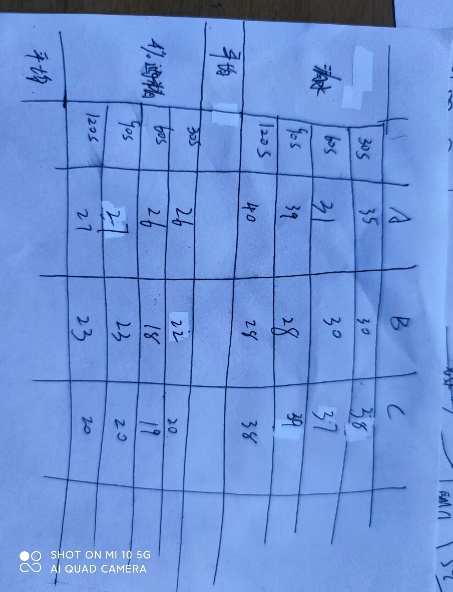 A B C
清水
30S 35 30 38
60S 31 30 37
90S 39 28 39
120S 40 28 38
平均
1%
30S 26 22 20
60S 26 18 19
90S 27 23 20
120S 27 23 20
平均
SHOT ON MI 10 5G
AI QUAD CAMERA